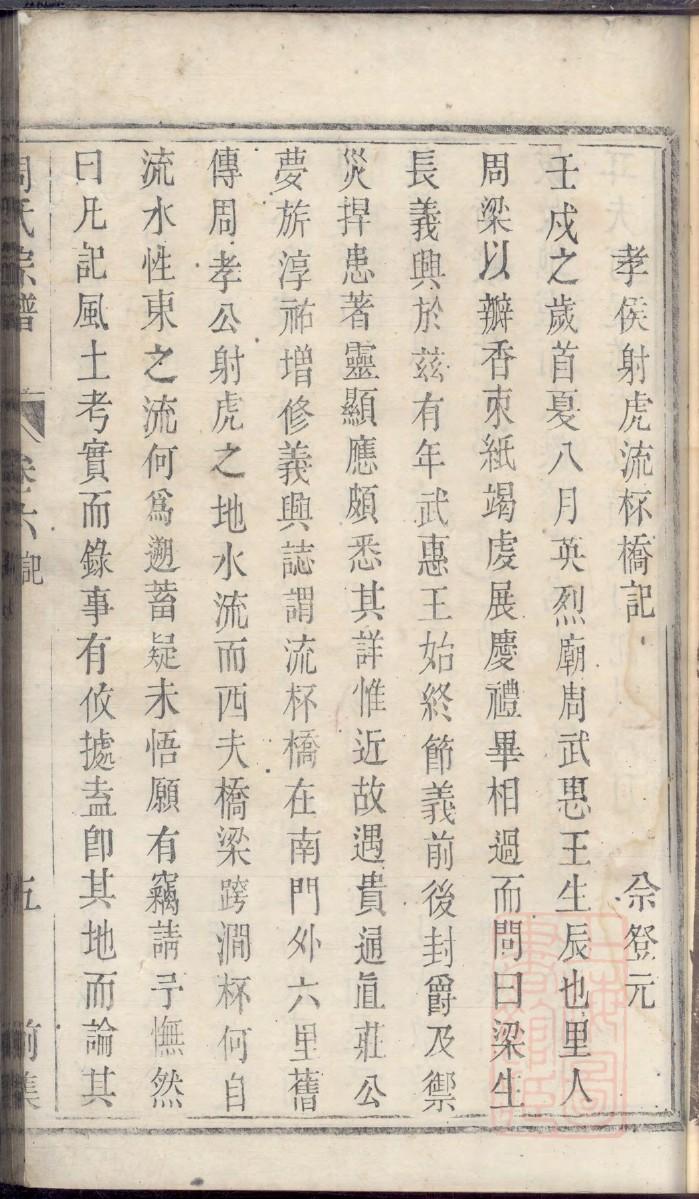 孝侯射虎流杯橋記 佘登元
壬戍之歲首夏八月英烈廟周武惠王生辰也里人
周梁以瓣香束紙竭虔展慶禮畢相過而問曰梁生
長義興於茲有年武惠王始終節義前後封爵及禦
災捍患著靈顯應頗悉其詳惟近故遇貴通直莊公
夢旂淳祐增修義興誌謂流杯橋在南門外六里舊
傳周孝公射虎之地水流而西夫橋梁跨澗杯何自
流水性東之流何爲遡蓄疑未悟願有竊請予憮然
曰凡記風土考實而錄事有攸據盍卽其地而論其
周氏宗譜 卷六 記 五 前集